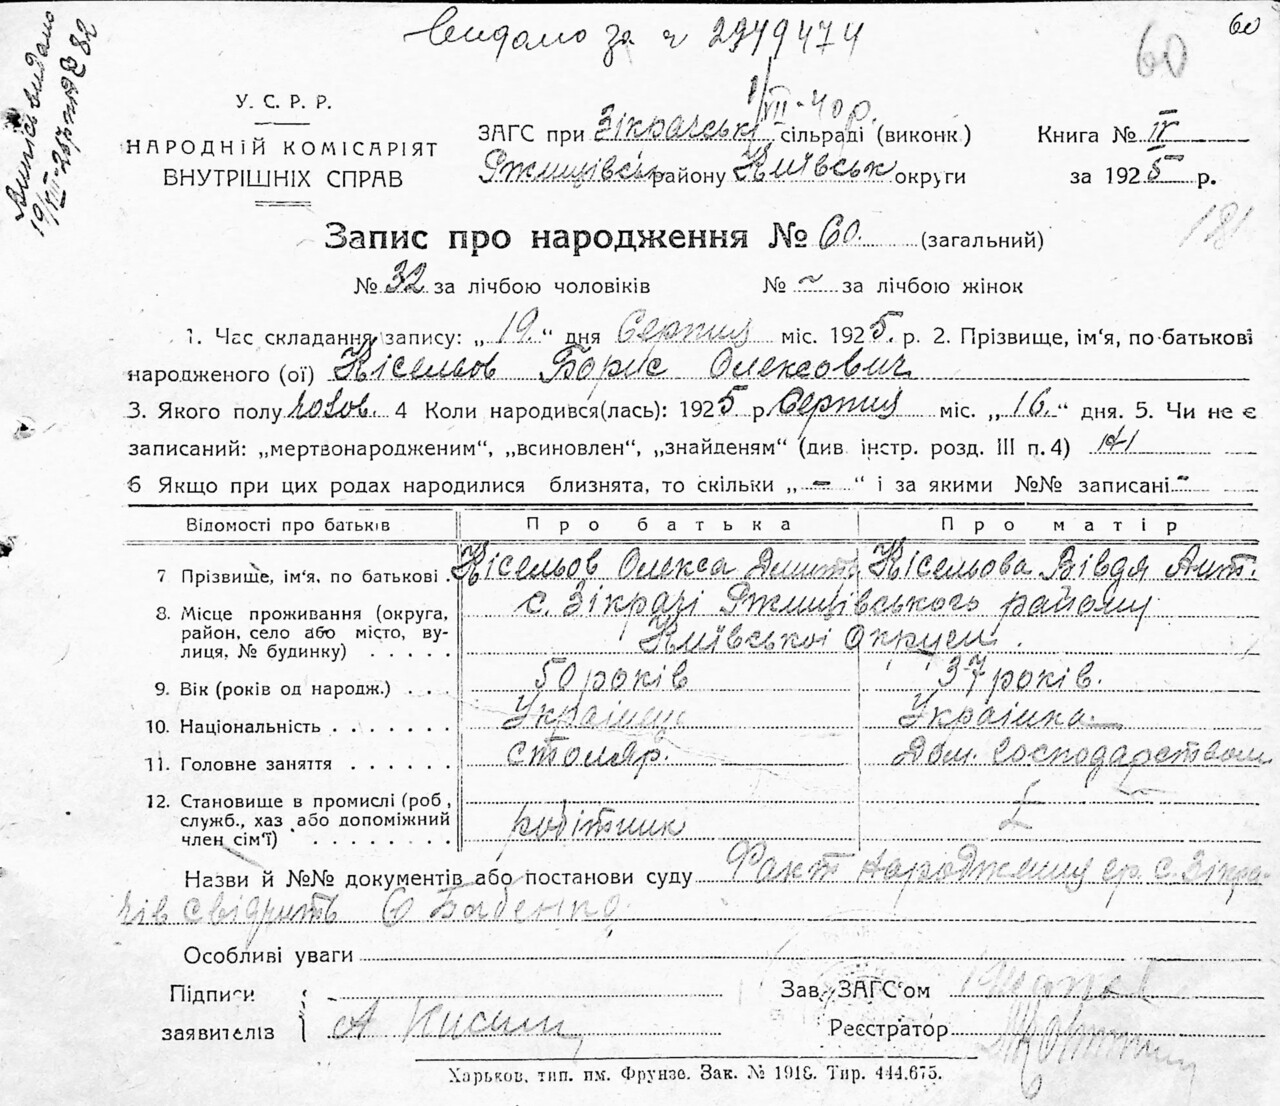 видано за № 2949474
60
60
Випись видано
19/VII-20
82
1/VII-40р.
У. С. Р. Р.
НАРОДНІЙ КОМІСАРІЯТ
ВНУТРІШНІХ СПРАВ
ЗАГС при Зікрачській сільраді (виконк.)
Ржищівськ району Київськ округи
Книга № IV
за 1925 р.
181
Запис про народження № 60. (загальний)
№ 32 за лічбою чоловіків № ~ за лічбою жінок
1. Час складання запису: „19.“ дня Серпня міс. 1925. р. 2. Прізвище, ім'я, по-батькові
народженого (ої) Кісельов Борис Олексович
3. Якого полу чолов. 4 Коли народився(лась): 1925 р. Серпня міс. „16.“ дня. 5. Чи не є
записаний: „мертвонародженим“, „всиновлен“, „знайденям“ (див інстр. розд. III п. 4) ні
6 Якщо при цих родах народилися близнята, то скільки „-“ і за якими №№ записані -
Відомості про батьків Про батька Про матір
7 Прізвище, ім'я, по батькові . Кісельов Олекса Дмитр. Кісельова Вівдя Ант.
8. Місце проживання (округа, район, село або місто, ву-
лиця, № будинку) . . . . . с. Зікрачі Ржищівського району
Київської Округи.
9. Вік (років од народж.) . . . 50 років 37 років.
10. Національність . . . . . . . Українець Українка
11. Головне заняття . . . . . . столяр. Дом. господарством
12. Становище в промислі (роб., служб., хаз або допоміжний
член сім'ї) . . . . . . . . робітник
Назви й №№ документів або постанови суду Факт народження гр. с. Зікра-
чів свідчить Бабенко
Особливі уваги
Підписи
заявителів А Кисил
Зав. ЗАГС'ом
Реєстратор
Харьков, тип. им. Фрунзе. Зак. № 1918. Тир. 444.675.